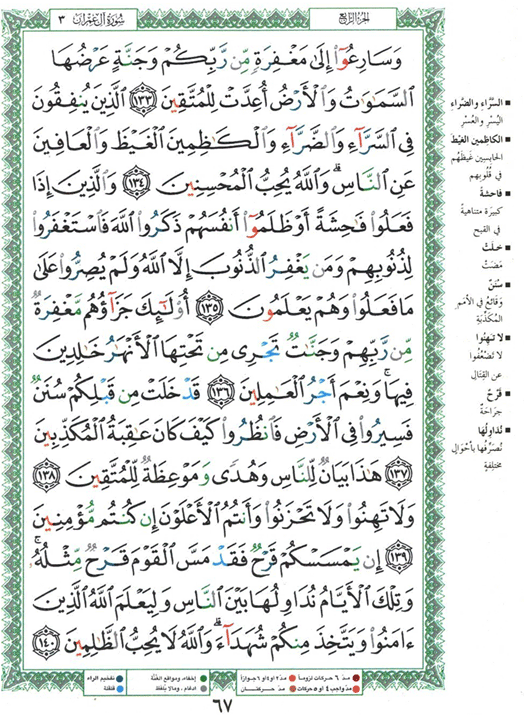 الجزء الرابع
سورة آل عمران ٣
وَسَارِعُوٓا۟ إِلَىٰ مَغْفِرَةٍ مِّن رَّبِّكُمْ وَجَنَّةٍ عَرْضُهَا
السَّمَٰوَٰتُ وَالْأَرْضُ أُعِدَّتْ لِلْمُتَّقِينَ ١٣٣ الَّذِينَ يُنفِقُونَ
فِى السَّرَّآءِ وَالضَّرَّآءِ وَالْكَٰظِمِينَ الْغَيْظَ وَالْعَافِينَ
عَنِ النَّاسِ ۗ وَاللَّهُ يُحِبُّ الْمُحْسِنِينَ ١٣٤ وَالَّذِينَ إِذَا
فَعَلُوا۟ فَٰحِشَةً أَوْ ظَلَمُوٓا۟ أَنفُسَهُمْ ذَكَرُوا۟ اللَّهَ فَاسْتَغْفَرُوا۟
لِذُنُوبِهِمْ وَمَن يَغْفِرُ الذُّنُوبَ إِلَّا اللَّهُ وَلَمْ يُصِرُّوا۟ عَلَىٰ
مَا فَعَلُوا۟ وَهُمْ يَعْلَمُونَ ١٣٥ أُو۟لَٰٓئِكَ جَزَآؤُهُم مَّغْفِرَةٌ
مِّن رَّبِّهِمْ وَجَنَّٰتٌ تَجْرِى مِن تَحْتِهَا الْأَنْهَٰرُ خَٰلِدِينَ
فِيهَا ۚ وَنِعْمَ أَجْرُ الْعَٰمِلِينَ ١٣٦ قَدْ خَلَتْ مِن قَبْلِكُمْ سُنَنٌ
فَسِيرُوا۟ فِى الْأَرْضِ فَانظُرُوا۟ كَيْفَ كَانَ عَٰقِبَةُ الْمُكَذِّبِينَ
١٣٧ هَٰذَا بَيَانٌ لِّلنَّاسِ وَهُدًى وَمَوْعِظَةٌ لِّلْمُتَّقِينَ ١٣٨
وَلَا تَهِنُوا۟ وَلَا تَحْزَنُوا۟ وَأَنتُمُ الْأَعْلَوْنَ إِن كُنتُم مُّؤْمِنِينَ
١٣٩ إِن يَمْسَسْكُمْ قَرْحٌ فَقَدْ مَسَّ الْقَوْمَ قَرْحٌ مِّثْلُهُۥ ۚ
وَتِلْكَ الْأَيَّامُ نُدَاوِلُهَا بَيْنَ النَّاسِ وَلِيَعْلَمَ اللَّهُ الَّذِينَ
ءَامَنُوا۟ وَيَتَّخِذَ مِنكُمْ شُهَدَآءَ ۗ وَاللَّهُ لَا يُحِبُّ الظَّٰلِمِينَ ١٤٠
السَّرَّاءِ والضَّرَّاءِ
اليُسْرِ والعُسْرِ
الكاظِمين الغَيْظَ
الحابِسِين غَيْظَهُم
في قُلُوبِهم
فاحِشَةً
كَبِيرَة مُتَناهِيَةً
في القبح
خَلَتْ
مَضَتْ
سُنَنٌ
وَقائِعُ في الأُمَمِ
المُكَذِّبَةِ
لا تَهِنُوا
لا تَضْعُفُوا
عن القِتالِ
قَرْحٌ
جِرَاحَةٌ
نُدَاوِلُها
نُصَرِّفُها بأحْوَالٍ
مختلِفَةٍ
مدّ ٦ حركات لزوماً
مدّ ٢ أو ٤ أو ٦ جوازاً
إخفاء، ومواقع الغُنَّة
تفخيم الراء
مدّ واجب ٤ أو ٥ حركات
مدّ حركتان
ادغام، ومالا يُلفَظ
قلقلة
٦٧